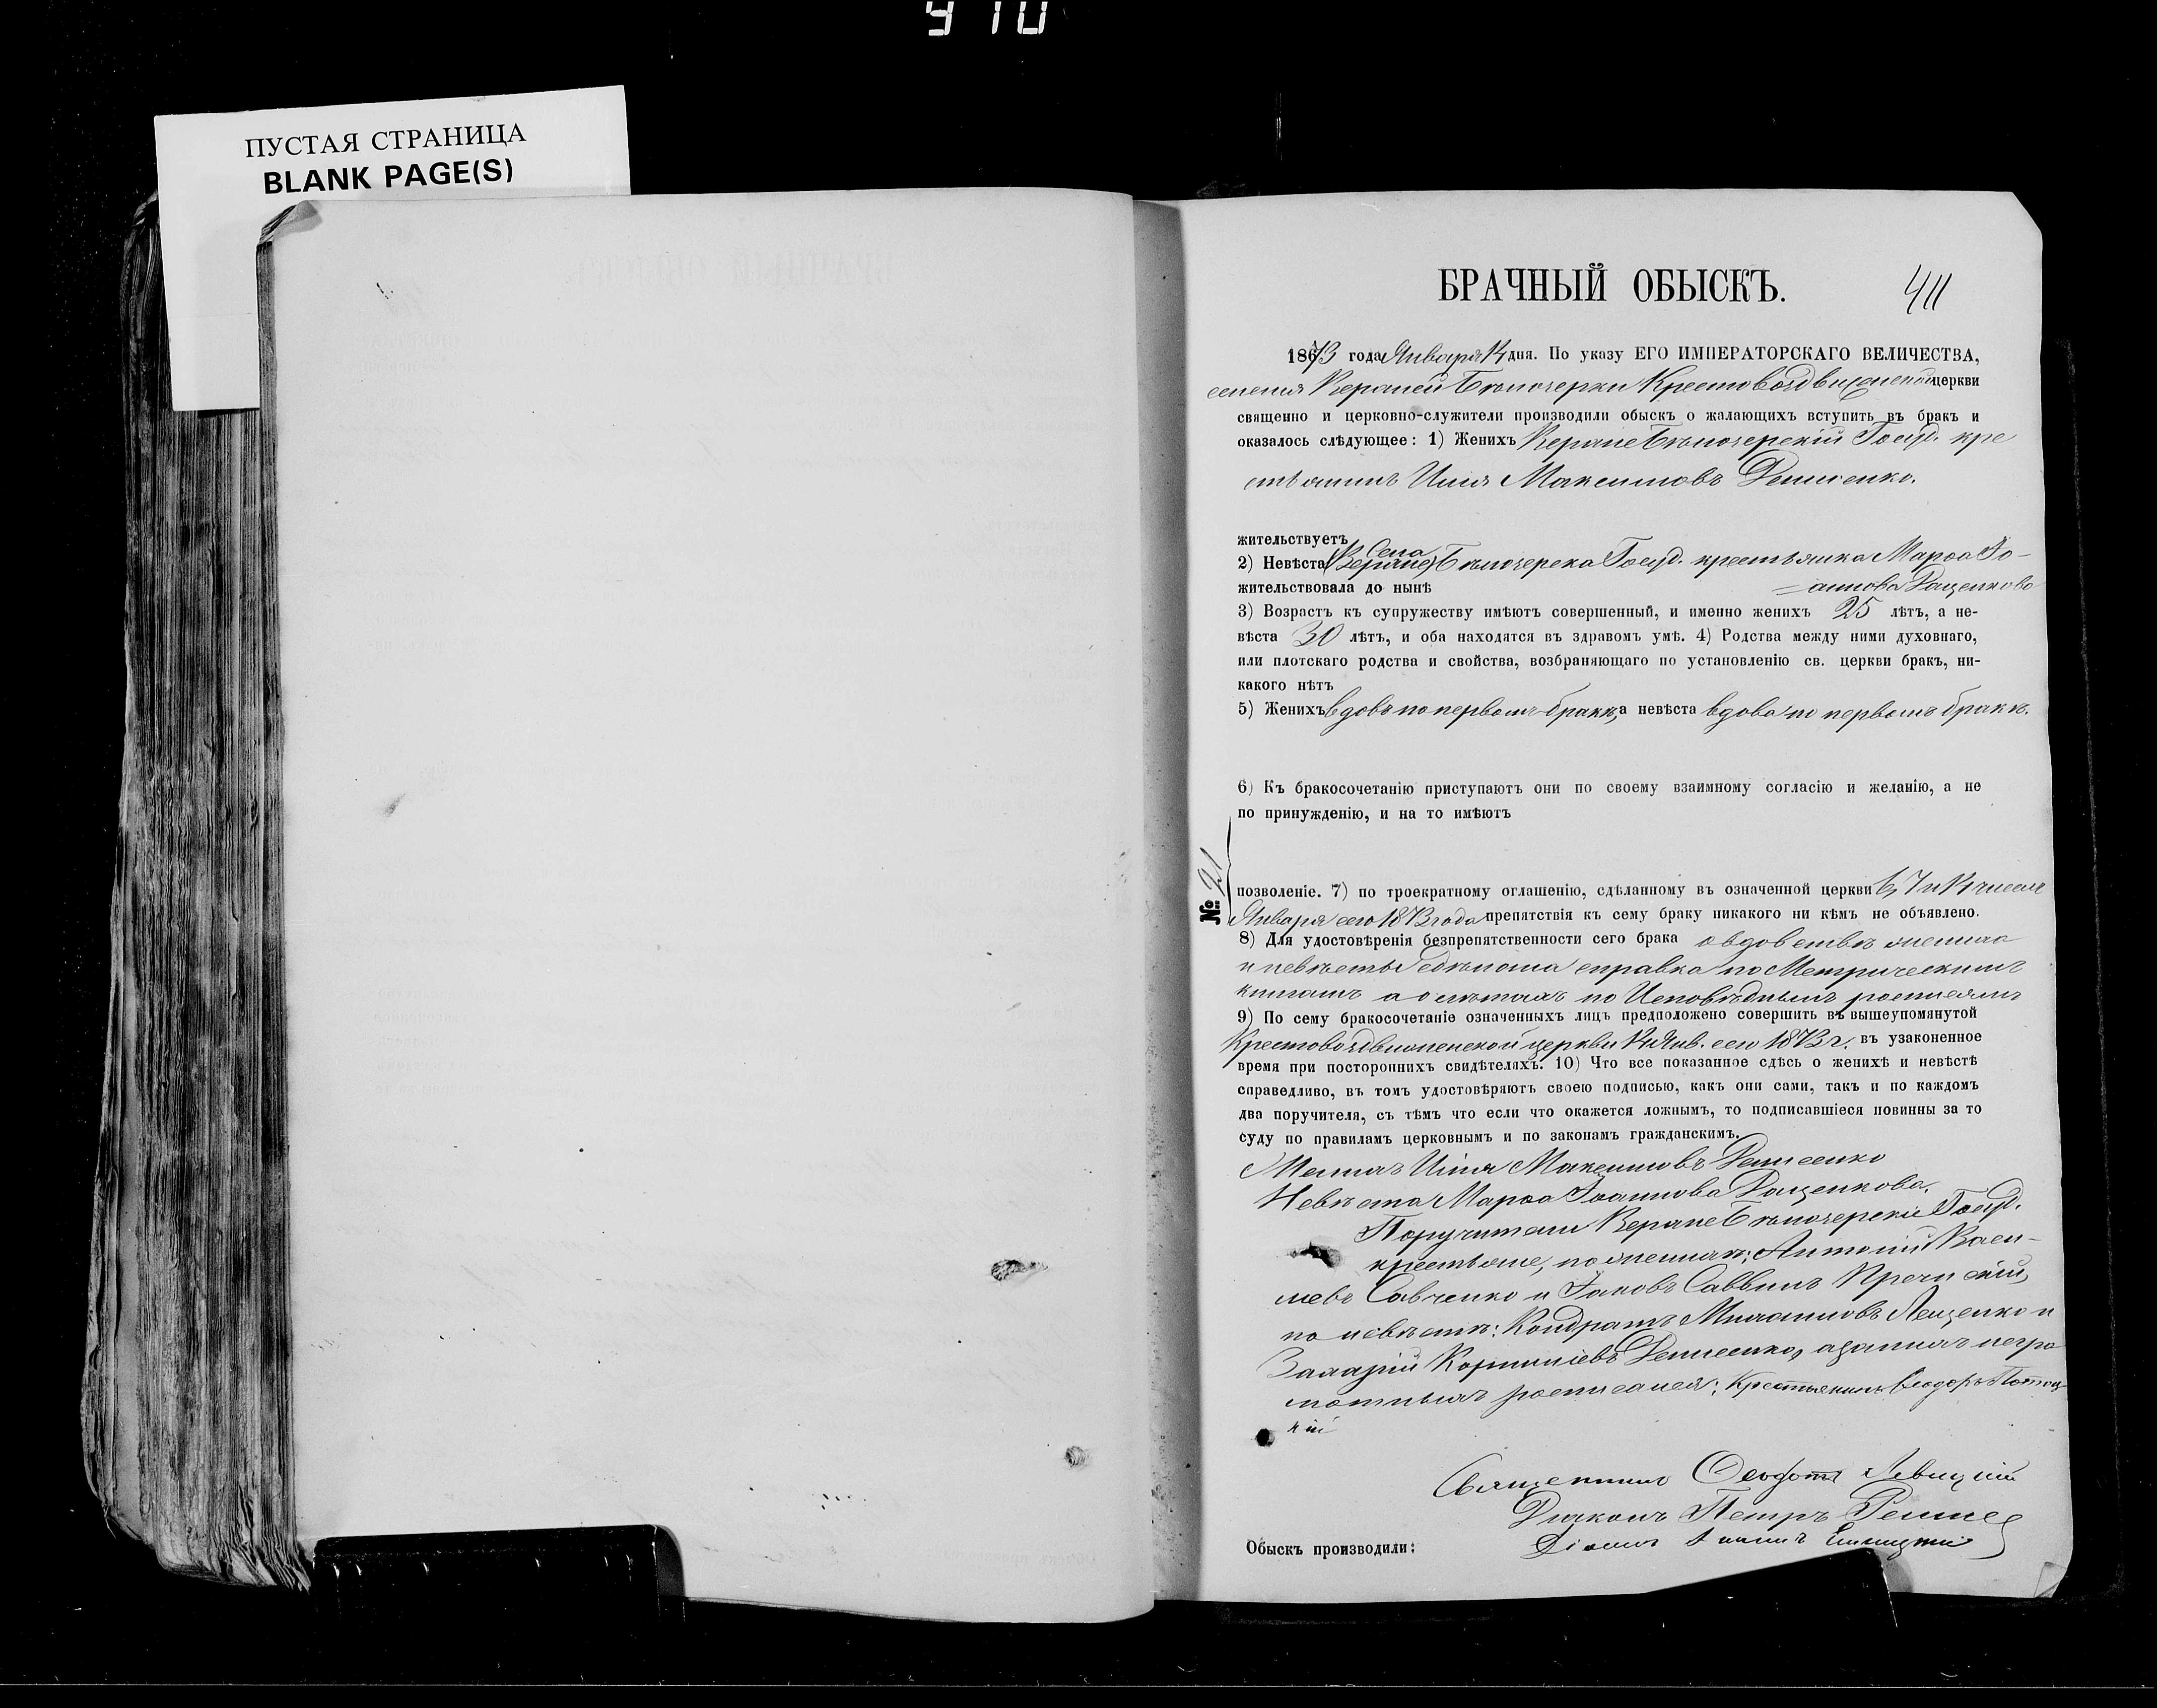 910
ПУСТАЯ СТРАНИЦА
BLANK PAGE(S)
БРАЧНЫЙ ОБЫСКЪ.
411
1873 года Января дня. По указу ЕГО ИМПЕРАТОРСКАГО ВЕЛИЧЕСТВА,
селенія Верхней Бѣлозерки Крестовоздвиженской церкви
священно и церковно-служители производили обыскъ о жалающихъ вступить въ бракъ и
оказалось слѣдующее: 1) Женихъ Верхнебѣлозерскій Госуд. кре
стьянинъ Илія Максимовъ Денисенко.
жительствуетъ
2) Невѣста Села (Верхне) Бѣлозерска Госуд. крестьянка Марѳа Іо-
жительствовала до нынѣ =аннова Дащенкова
3) Возрастъ къ супружеству имѣютъ совершенный, и именно женихъ 25 лѣтъ, а не-
вѣста 30 лѣтъ, и оба находятся въ здравомъ умѣ. 4) Родства между ними духовнаго,
или плотскаго родства и свойства, возбраняющаго по установленію св. церкви бракъ, ни-
какого нѣтъ
5) Женихъ вдовъ по первомъ бракѣ, а невѣста вдова по первомъ бракѣ.
6) Къ бракосочетанію приступаютъ они по своему взаимному согласію и желанію, а не
по принужденію, и на то имѣютъ
№ 21
позволеніе. 7) по троекратному оглашенію, сдѣланному въ означенной церкви 6, 7 и числа
Января сего 1873 года препятствія къ сему браку никакого ни кѣмъ не объявлено.
8) Для удостовѣренія безпрепятственности сего брака о вдовствѣ жениха
и невѣсты сдѣлана справка по Метрическимъ
книгамъ а о лѣтахъ по Исповѣднымъ росписямъ
9) По сему бракосочетаніе означенныхъ лицъ предположено совершить въ вышеупомянутой
Крестовоздвиженской церкви Янв. сего 1873 г. въ узаконенное
время при постороннихъ свидѣтеляхъ. 10) Что все показанное сдѣсь о женихѣ и невѣстѣ
справедливо, въ томъ удостовѣряютъ своею подписью, какъ они сами, такъ и по каждомъ
два поручителя, съ тѣмъ что если что окажется ложнымъ, то подписавшіеся повинны за то
суду по правиламъ церковнымъ и по законамъ гражданскимъ.
Женихъ Илія Максимовъ Денисенко
Невѣста Марѳа Іоаннова Дащенкова.
Поручители Верхнебѣлозерскіе Госуд.
крестьяне, по женихѣ: Антоній Васи-
льевъ Савченко и Іаковъ Саввинъ
по невѣстѣ: Кондратъ Михаиловъ Лещенко и
Корниліевъ Денисенко, а за нихъ негра
мотныхъ росписался: Крестьянинъ Ѳеодоръ Потоц-
кій
Священникъ Ѳеодотъ Левицкій
Діаконъ Петръ
Обыскъ производили: